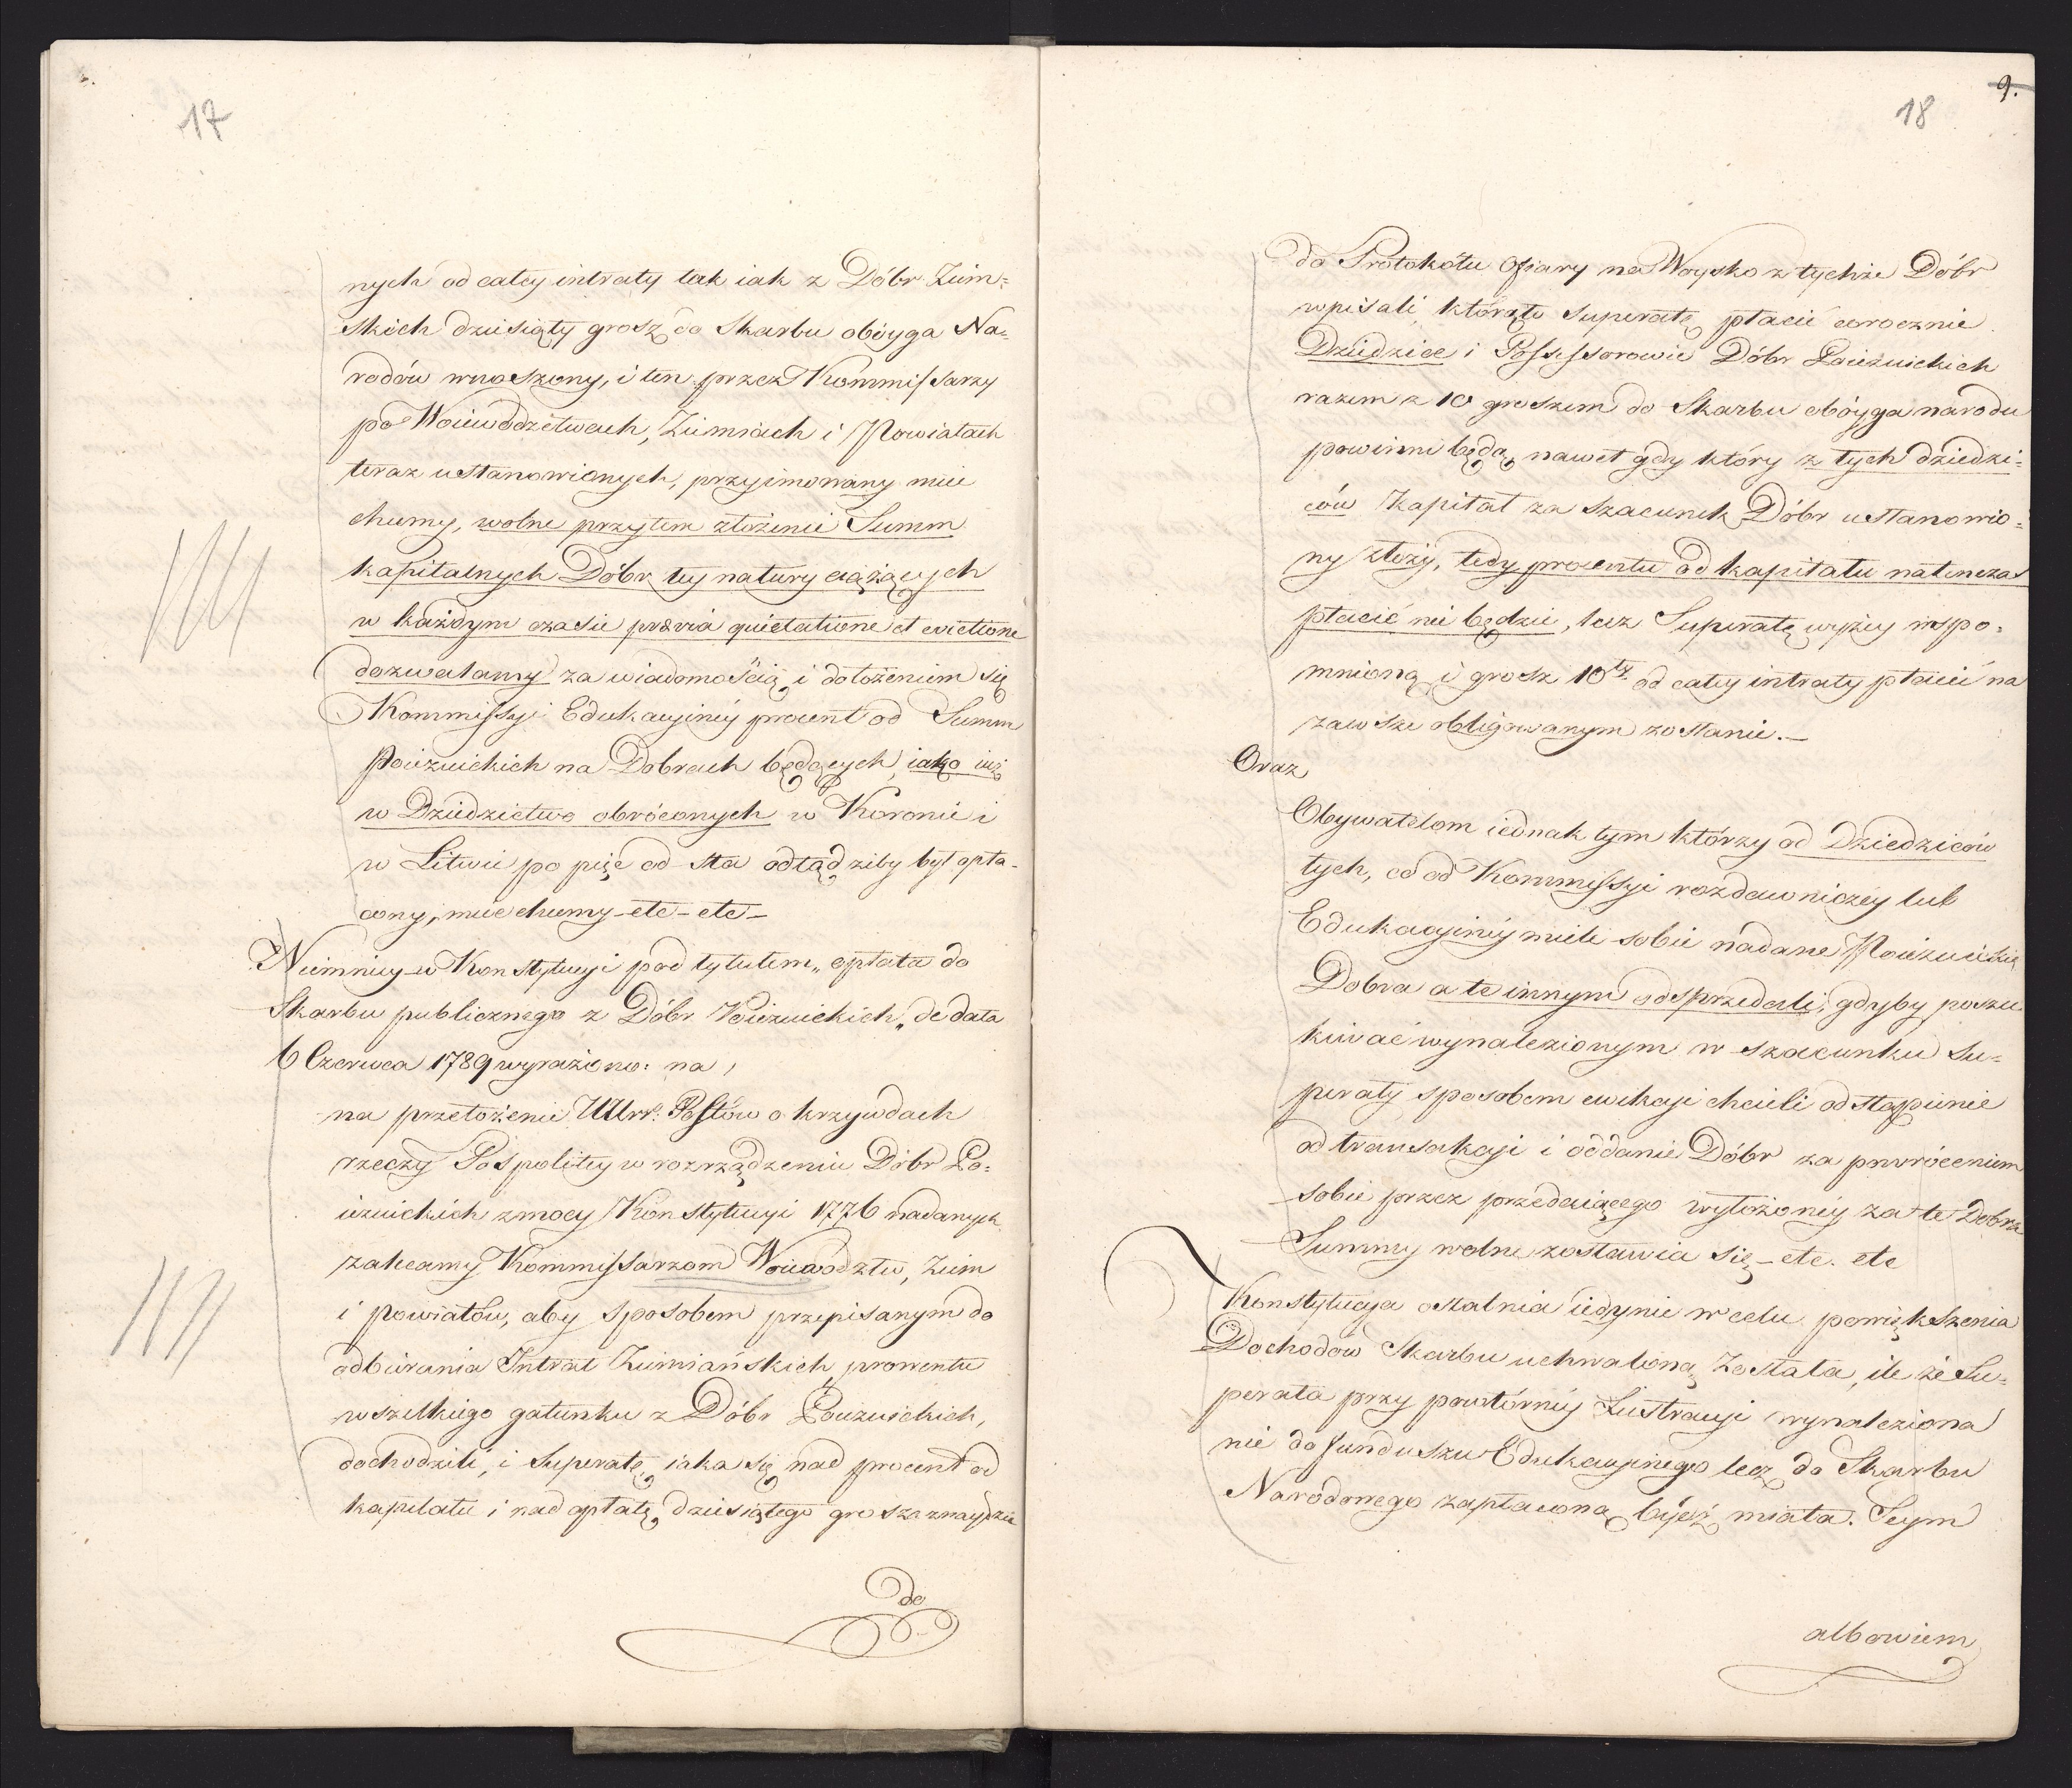 17
nych od całey intraty tak iak z Dóbr Ziem=
skich dziesiąty grosz do Skarbu obóyga Na=
rodów wnoszony, i ten przez Kommissarzy
po Woiewodztwach, Ziemiach i Powiatach
teraz ustanowionych, przyimowany mieć
chcemy, wolne przytem złożenie Summ
kapitalnych Dóbr tey natury ciążących
w każdym czasie prævia quietatione et evictione
dozwalamy za wiadomością i dołożeniem się
Kommissyi Edukacyinéy procent od Summ
Poiezuickich na Dobrach będących, iako iuż
w Dziedzictwo obróconych w Koronie i
w Litwie po pięć od sta odtąd żeby był opła-
cony, mieć chcemy - etc - etc -
Niemniey w Konstytucyi pod tytułem „opłata do
Skarbu publicznego z Dóbr Poiezuickich„ de data
6 Czerwca 1789 wyrażono: na,
na przełożenie UUrr. Posłów o krzywdach
rzeczy Pospolitey w rozrządzeniu Dóbr Po=
iezuickich z mocy Konstytucyi 1776 nadanych
zalecamy Kommissarzom Woiewództw, Ziem
i powiatów, aby sposobem przepisanym do
odbierania Intrat Ziemiańskich, prowentu
wszelkiego gatunku z Dóbr Poiezuickich,
dochodzili, i Superatę, iaka się nad procent od
kapitału i nad opłatę dziesiątego grosza znaydzie
do
18
9.
do Protokółu ofiary na Woysko z tychże Dóbr
wpisali, którąto superatę płacić corocznie
Dziedzice i Possessorowie Dóbr Poiezuickich
razem z 10 groszem do Skarbu obóyga narodu
powinni będą, nawet gdy który z tych dziedzi=
ców Kapitał za szacunek Dóbr ustanowio=
ny złoży, tedy procentu od kapitału natenczas
płacić nie będzie, lecz Superatę wyżey wspo=
mnioną i grosz 10ty od całey intraty płacić na
zawsze obligowanym zostanie. -
Oraz
Obywatelom iednak tym którzy od Dziedziców
tych, co od Kommissyi rozdawniczéy lub
Edukacyinéy mieli sobie nadane Poiezuickie
Dobra a te innym odsprzedali, gdyby poszu
kiwać wynalezionym w szacunku Su=
peraty sposobem ewikcyi chcieli odstąpienie
od transakcyi i oddanie Dóbr za powróceniem
sobie przez przedaiącego wyłożonéy za te Dobra
Summy wolne zostawia się - etc. etc
Konstytucya ostatnia iedynie w celu powiększenia
Dochodów Skarbu uchwaloną została, ile że Su=
perata przy powtórnéy Lustracyi wynaleziona
nie do funduszu Edukacyinego lecz do Skarbu
Narodowego zapłaconą bydź miała. Seym
albowiem